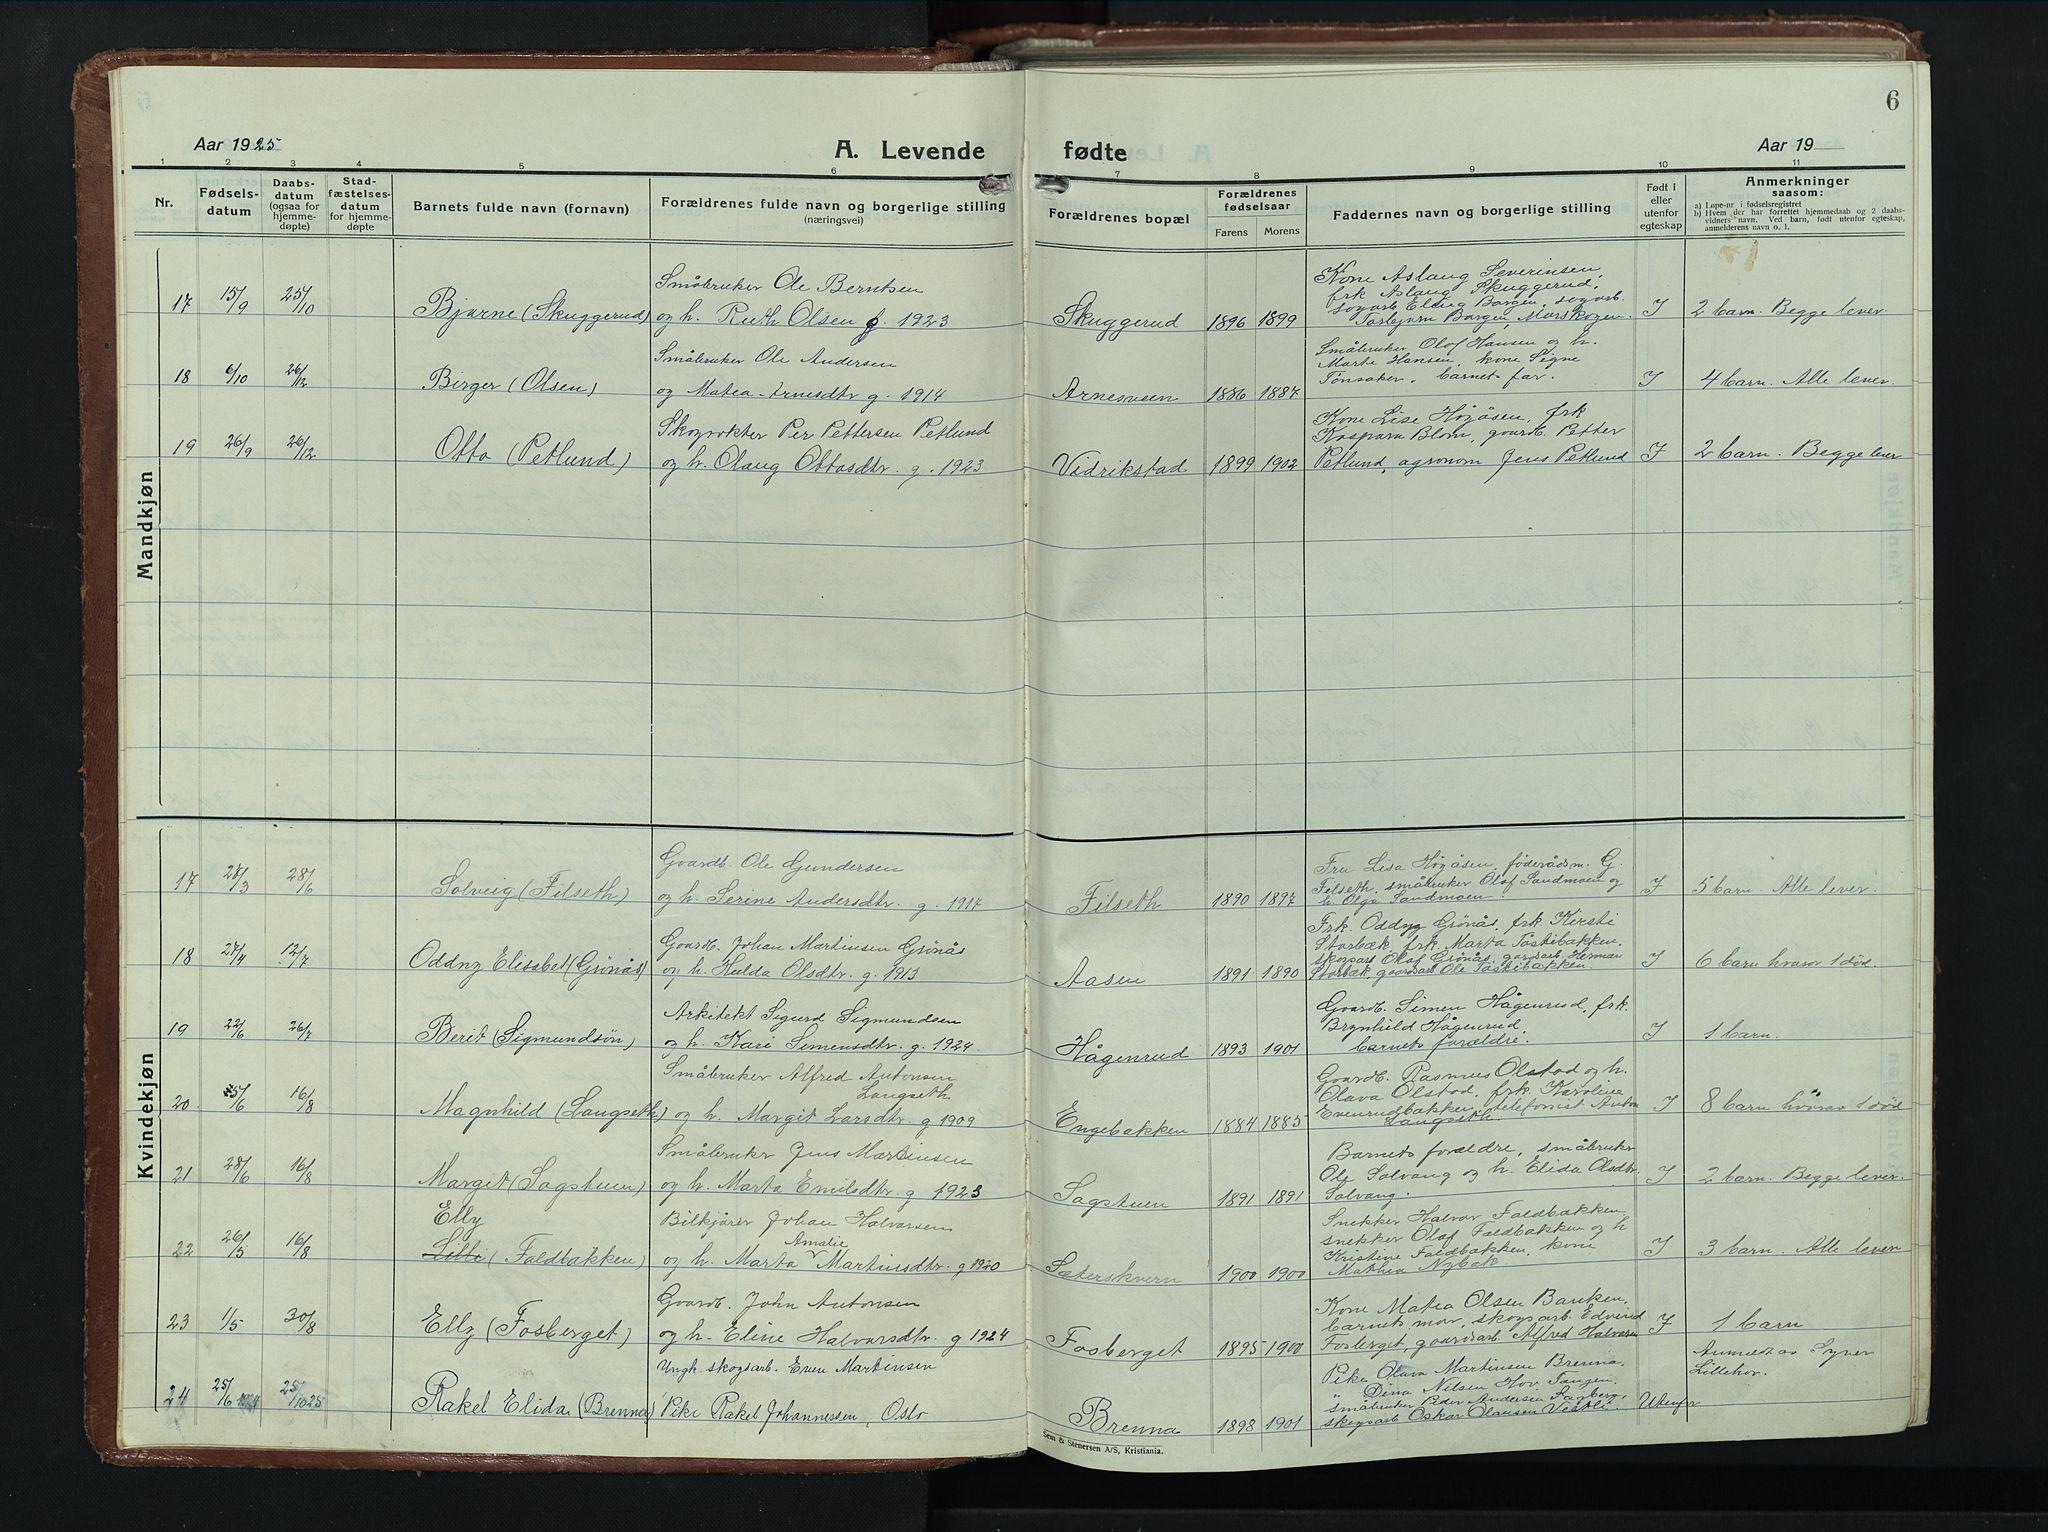 6
Aar 1925
A. Levende
fødte
Aar 19
1 2 3 4 5 6 7 8 9 10 11
Nr.
Fødsels-
datum
Daabs-
datum
(ogsaa for
hjemme-
døpte)
Stad-
fæstelses-
datum
for hjemme-
døpte
Barnets fulde navn (fornavn)
Forældrenes fulde navn og borgerlige stilling
(næringsvei)
Forældrenes bopæl
Forældrenes
fødselsaar
Farens Morens
Faddernes navn og borgerlige stilling
Født i
eller
utenfor
egteskap
Anmerkninger
saasom:
a) Løpe-nr i fødselsregistret
b) Hvem der har forrettet hjemmedaab og 2 daabs-
vidners navn. Ved barn, født utenfor egteskap,
anmelderens navn o. l.
Mandkjøn
17 15/9 25/10 Bjarne (Skuggerud)
Småbruker Ole Berntsen
og h. Ruth Olsen g. 1923
Skuggerud 1896 1899
Kone Aslaug Severinsen,
frk Aslaug Skuggerud,
sagarb. Elang Borgen, sagarb.
Torbjørn Borgen, Morskogen
I 2 barn. Begge lever
18 6/10 26/12 Birger (Olsen)
Småbruker Ole Andersen
og Matea Arnesdtr g. 1914
Arnesveen 1886 1887
Småbruker Olof Hansen og h.
Marte Hansen, kone Signe
Tønsaker, barnets far.
I 4 barn. Alle lever
19 26/9 26/12 Otto (Petlund)
Skogvokter Per Pettersen Petlund
og h. Olaug Ottosdtr. g. 1923
Vidrikstad 1899 1902
Kone Lise Højåsen, frk
Kaspara Blom, gaardb. Petter
Petlund, agronom Jens Petlund
I 2 barn. Begge lever
Kvindekjøn
17 27/3 28/6 Solveig (Filseth)
Gaardb. Ole Gundersen
og h. Serine Andersdtr. g. 1917
Filseth 1890 1897
Fru Lisa Højåsen, føderådsm. G.
Filseth, småbruker Olaf Sandmoen og
h. Olga Sandmoen.
I 5 barn Alle lever.
18 27/4 12/7 Oddny Elisabet (Grönås)
Gaardb. Johan Martinsen Grönås
og h. Hulda Olsdtr. g. 1913
Aasen 1891 1890
Frk. Oddyg Grönås, frk. Kirsti
Storbæk, frk. Marta Tøstibakken,
skogsarb Olaf Grönås, gardsarb. Herman
Storbæk, gaardsarb Ole Tøstibakken.
I 6 barn hvorav 1 död.
19 22/6 26/7 Berit (Sigmundsön)
Arkitekt Sigurd Sigmundsen
og h. Kari Simensdtr. g. 1924.
Hågenrud 1893 1901
Gaardb. Simen Hågenrud, frk.
Brynhild Hågenrud,
barnets forældre.
I 1 barn.
20 5/6 16/8 Magnhild (Langseth)
Småbruker Alfred Antonsen
Langseth
og h. Margit Larsdtr. g 1909
Engebakken 1884 1885
Gaardb. Rasmus Olstad og h.
Olava Olstad, frk. Karoline
Evenrudbakken, telefonist Anton
Langseth.
I 8 barn hvorav 1 död
21 28/6 16/8 Margit (Sagstuen)
Småbruker Jens Martinsen
og h. Marta Emilsdtr. g 1923
Sagstuen 1891 1891
Barnets forældre, småbruker
Ole Solvang og h. Elida Olsdtr.
Solvang.
I 2 barn. Begge lever.
Elly
22 26/5 16/8 Lilli (Faldbakken)
Bilkjører Johan Halvorsen
Amalie
og h. Marta Martinsdtr. g 1920
Sæterskvern 1900 1900
Snekker Halvor Faldbakken
snekker Olaf Faldbakken og h
Kristine Faldbakken, kone
Mathea Nybak
I 3 barn. Alle lever
23 1/5 30/8 Elly (Fosberget)
Gaardb. John Antonsen
og h. Eline Halvorsdtr. g 1924
Fosberget 1895 1900
Kone Matea Olsen Banken,
barnets mor, skogsarb. Edvind
Fosberget, gaardsarb. Alfred Halvorsen
I 1 barn
24 25/6 1924 25/10 25 Rakel Elida (Brenna)
Ungk. skogsarb. Even Martinsen
Pike Rakel Johannessen, Oslo
Brenna 1898 1901
Pike Olava Martinsen Brenna,
" Dina Nilsen Hov Tangen,
småbruker Peder Andersen Sagberg,
skogsarb Oskar Olausen Vestli
Utenfor
Anmeldt av Syver
Lillehov.
Sem & Stenersen A/S, Kristiania.